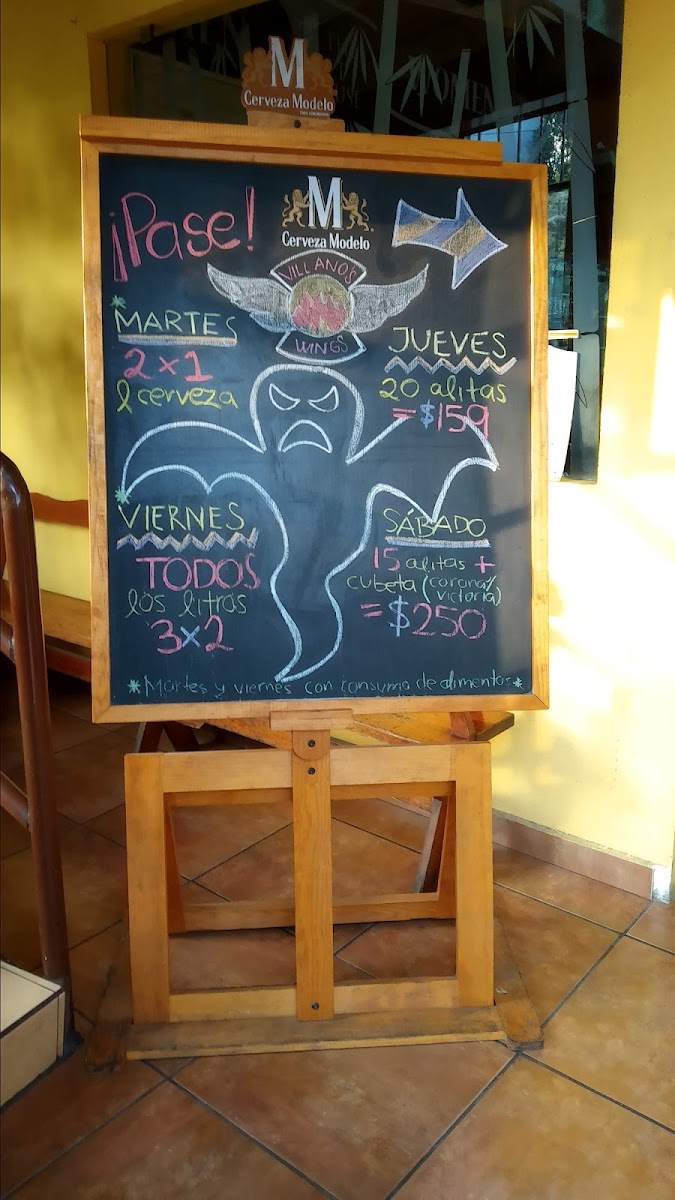 M
Cerveza Modelo
¡Pase!
M
Cerveza Modelo
VILLANO'S
WINGS
*
MARTES
2x1
l cerveza
JUEVES
20 alitas
=$159
*
VIERNES
TODOS
los litros
3x2
SÁBADO
15 alitas +
cubeta (corona/
victoria)
=$250
*Martes y viernes con consumo de alimentos*